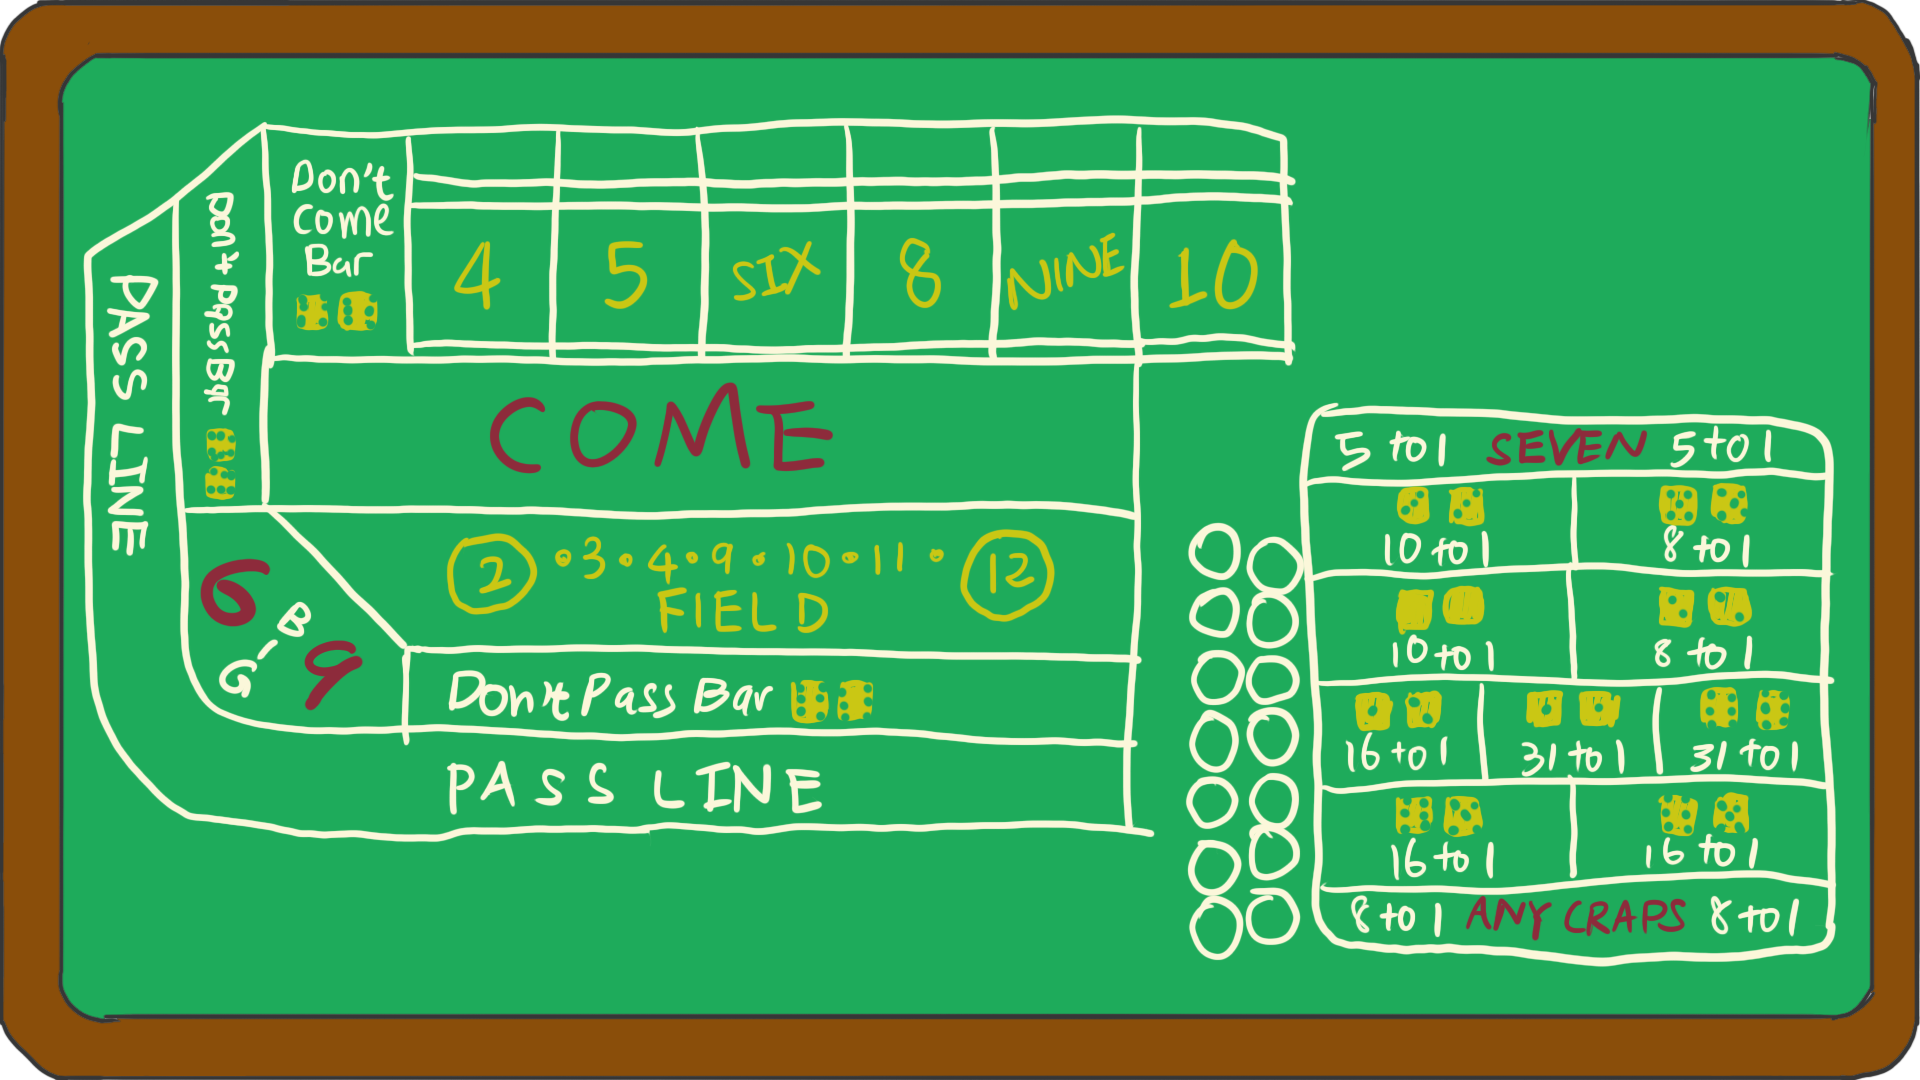 PASS LINE
Don't Pass Bar
Don't
Come
Bar
4 5 SIX 8 NINE 10
COME
2 • 3 • 4 • 9 • 10 • 11 • 12
FIELD
6 BIG 9
Don't Pass Bar
PASS LINE
5 to 1 SEVEN 5 to 1
10 to 1 8 to 1
10 to 1 8 to 1
16 to 1 31 to 1 31 to 1
16 to 1 16 to 1
8 to 1 ANY CRAPS 8 to 1